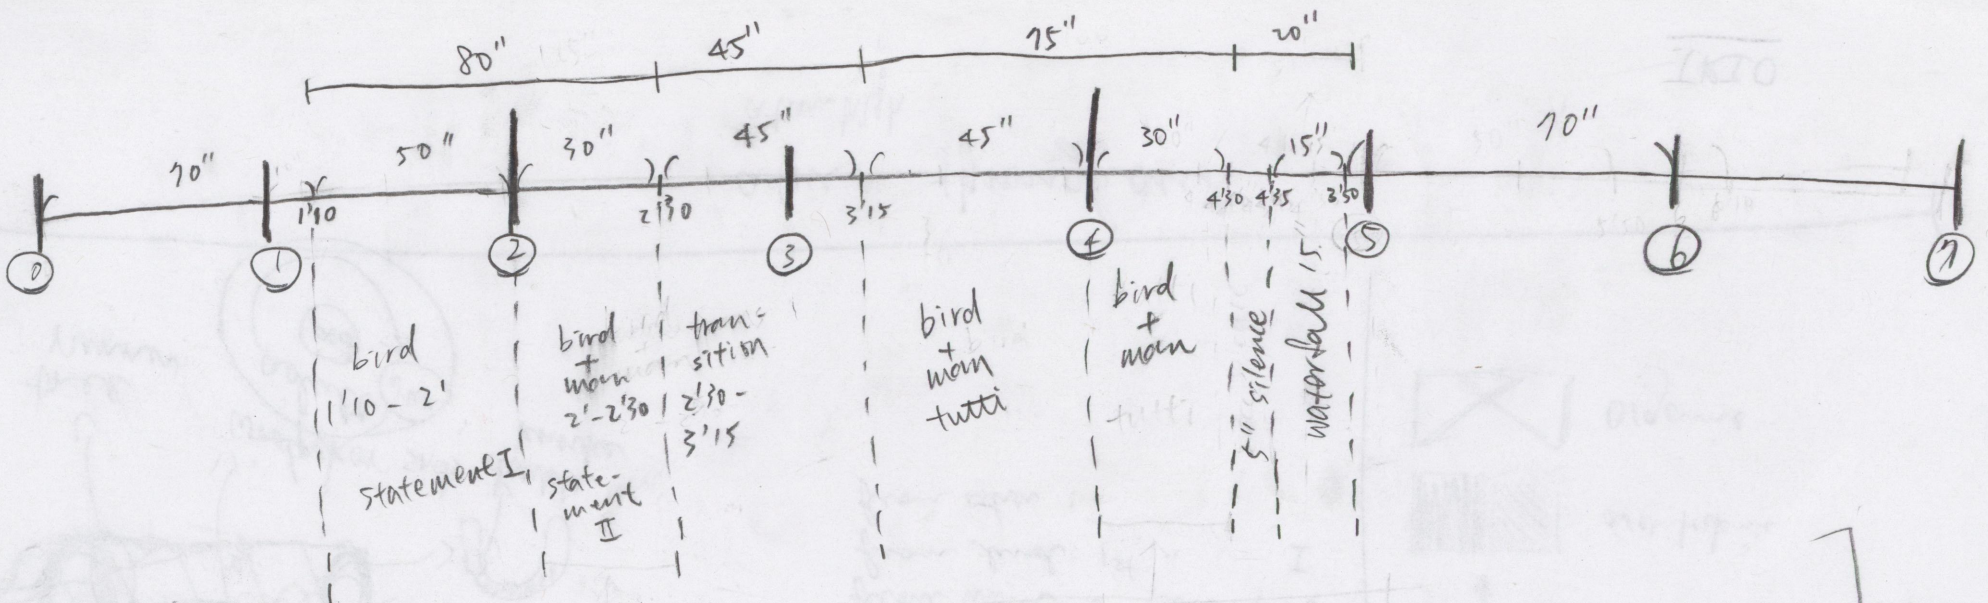 80" 45" 75" 20"
70" 50" 30" 45" 45" 30" 15" 70"
1'10 2'30 3'15 4'30 4'35 3'50
0 1 2 3 4 5 6 7
bird
1'10 - 2'
statement I
bird
+
man
2'-2'30
state-
ment
II
tran-
sition
2'30-
3'15
bird
+
man
tutti
bird
+
man
5" silence
waterfall 15"